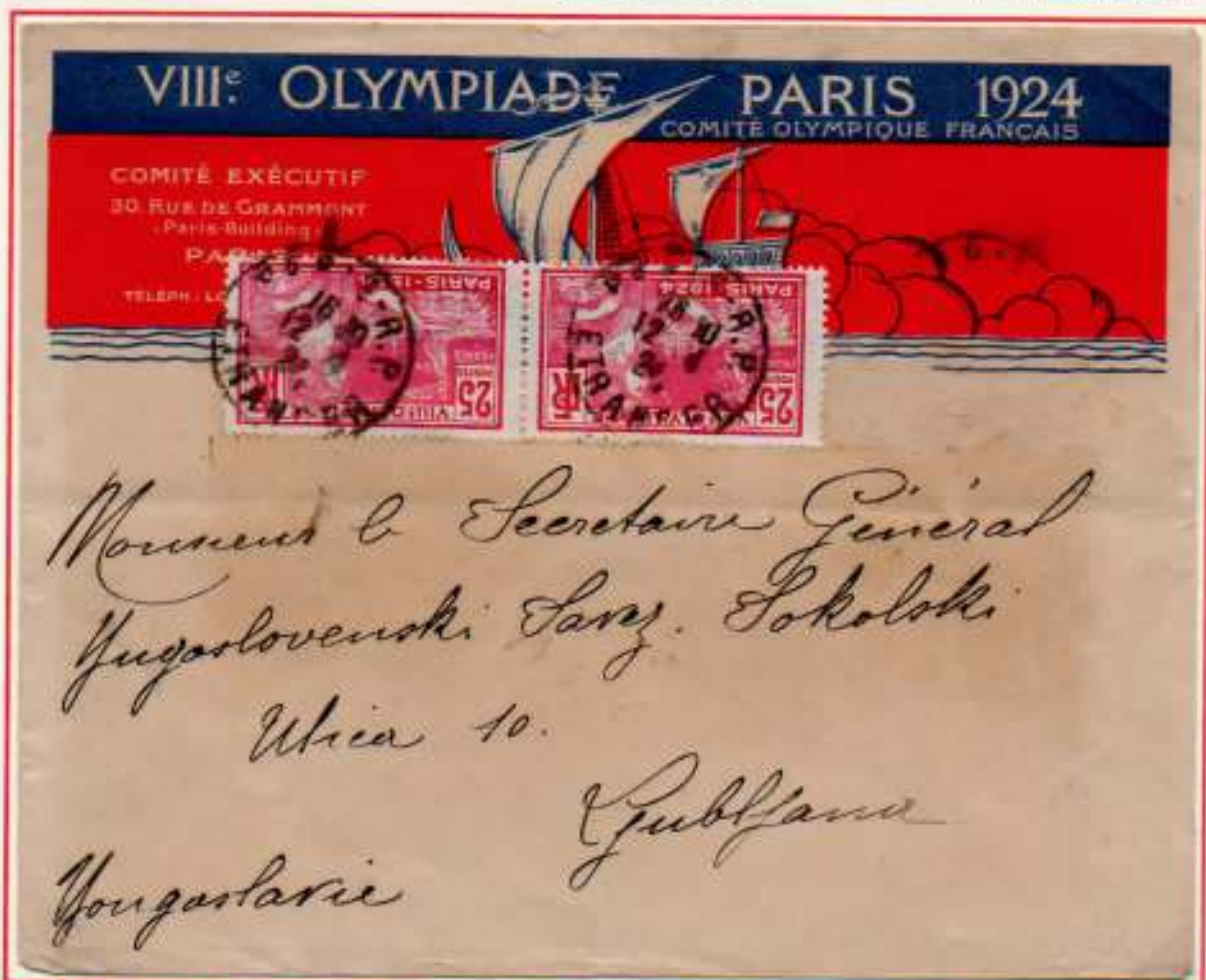 VIIIe. OLYMPIADE PARIS 1924
COMITÉ OLYMPIQUE FRANÇAIS
COMITÉ EXÉCUTIF
30. RUE DE GRAMMONT
-Paris-Building-
TÉLÉPH:
PARIS-1924
25
25
R.P.
R.P.
ETRANGER
ETRANGER
Monsieur le Secretaire Général
Yugoslovenski Savez. Sokolski
Ulica 10.
Ljubljana
Yougoslavie